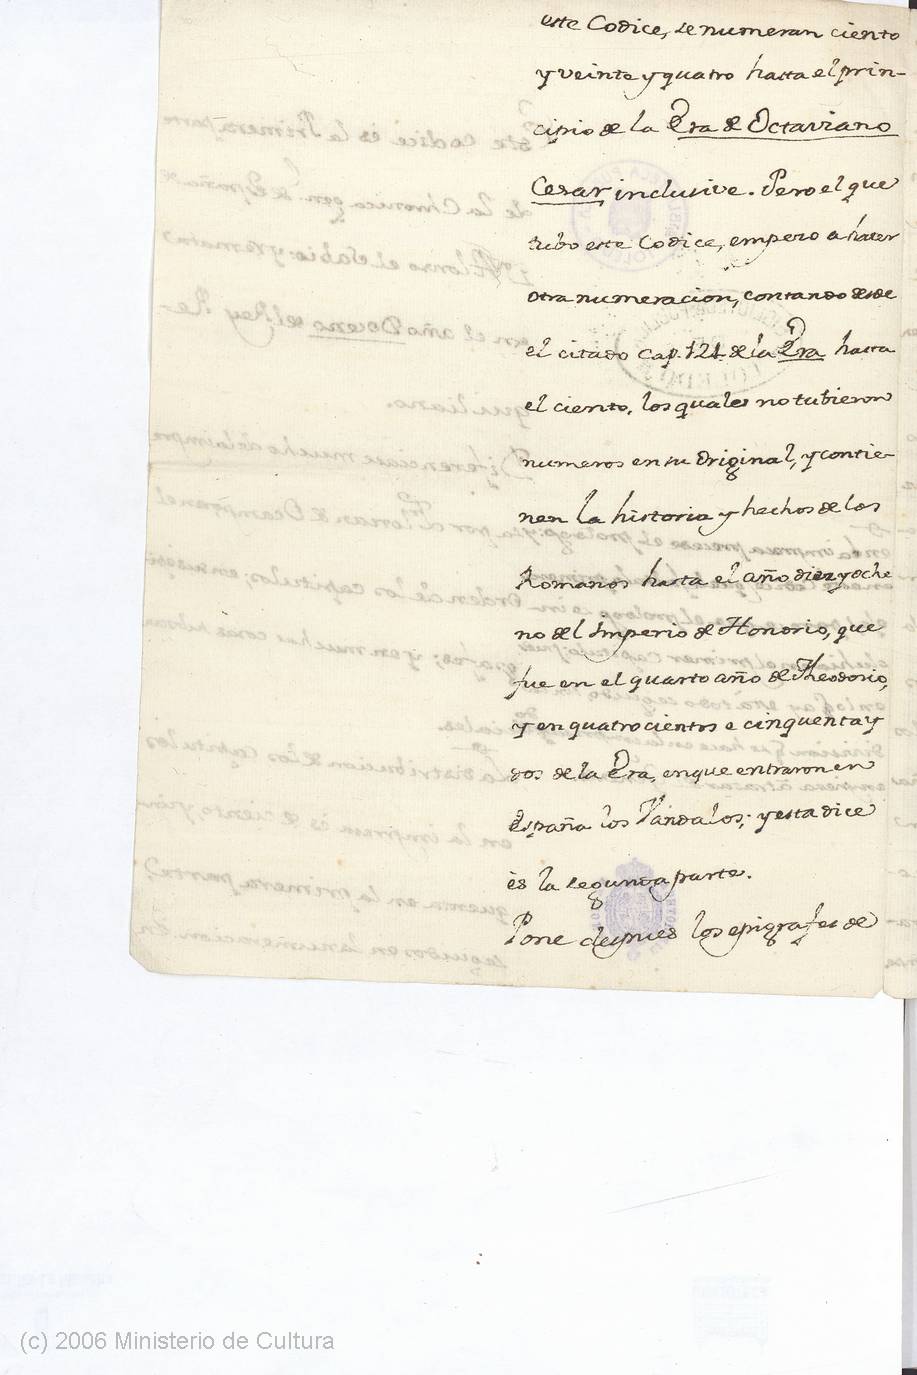 este Codice, se numeran ciento
y veinte y quatro hasta el prin-
cipio de la Era de Octaviano
Cesar inclusive. Pero el que
tubo este Codice, empezo a hacer
otra numeracion, contando desde
el citado cap. 121. de la Era hasta
el ciento, los quales no tubieron
numeros en su Original, y contie-
nen la historia y hechos de los
Romanos hasta el año diez y oche
no del Imperio de Honorio, que
fue en el quarto año de Theodorio,
y en quatrocientos e cinquenta y
dos de la Era, en que entraron en
España los Vandalos; y esta dice
ès la segunda parte.
Pone despues los epigrafes de
(c) 2006 Ministerio de Cultura